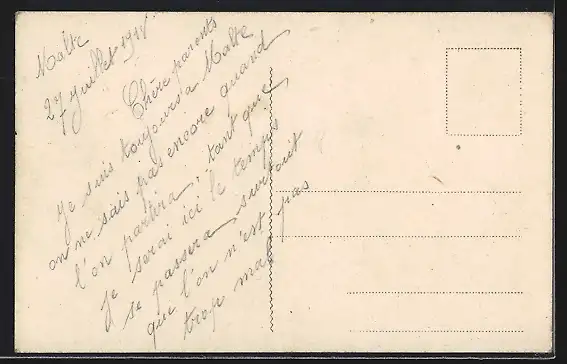 Malte
27 juillet 191
Chère parents
Je suis toujours a Malte
on ne sais pas encore quand
l'on partira, tant que
je serai ici le temps
se passera, surtout
que l'on n'est pas
trop mal